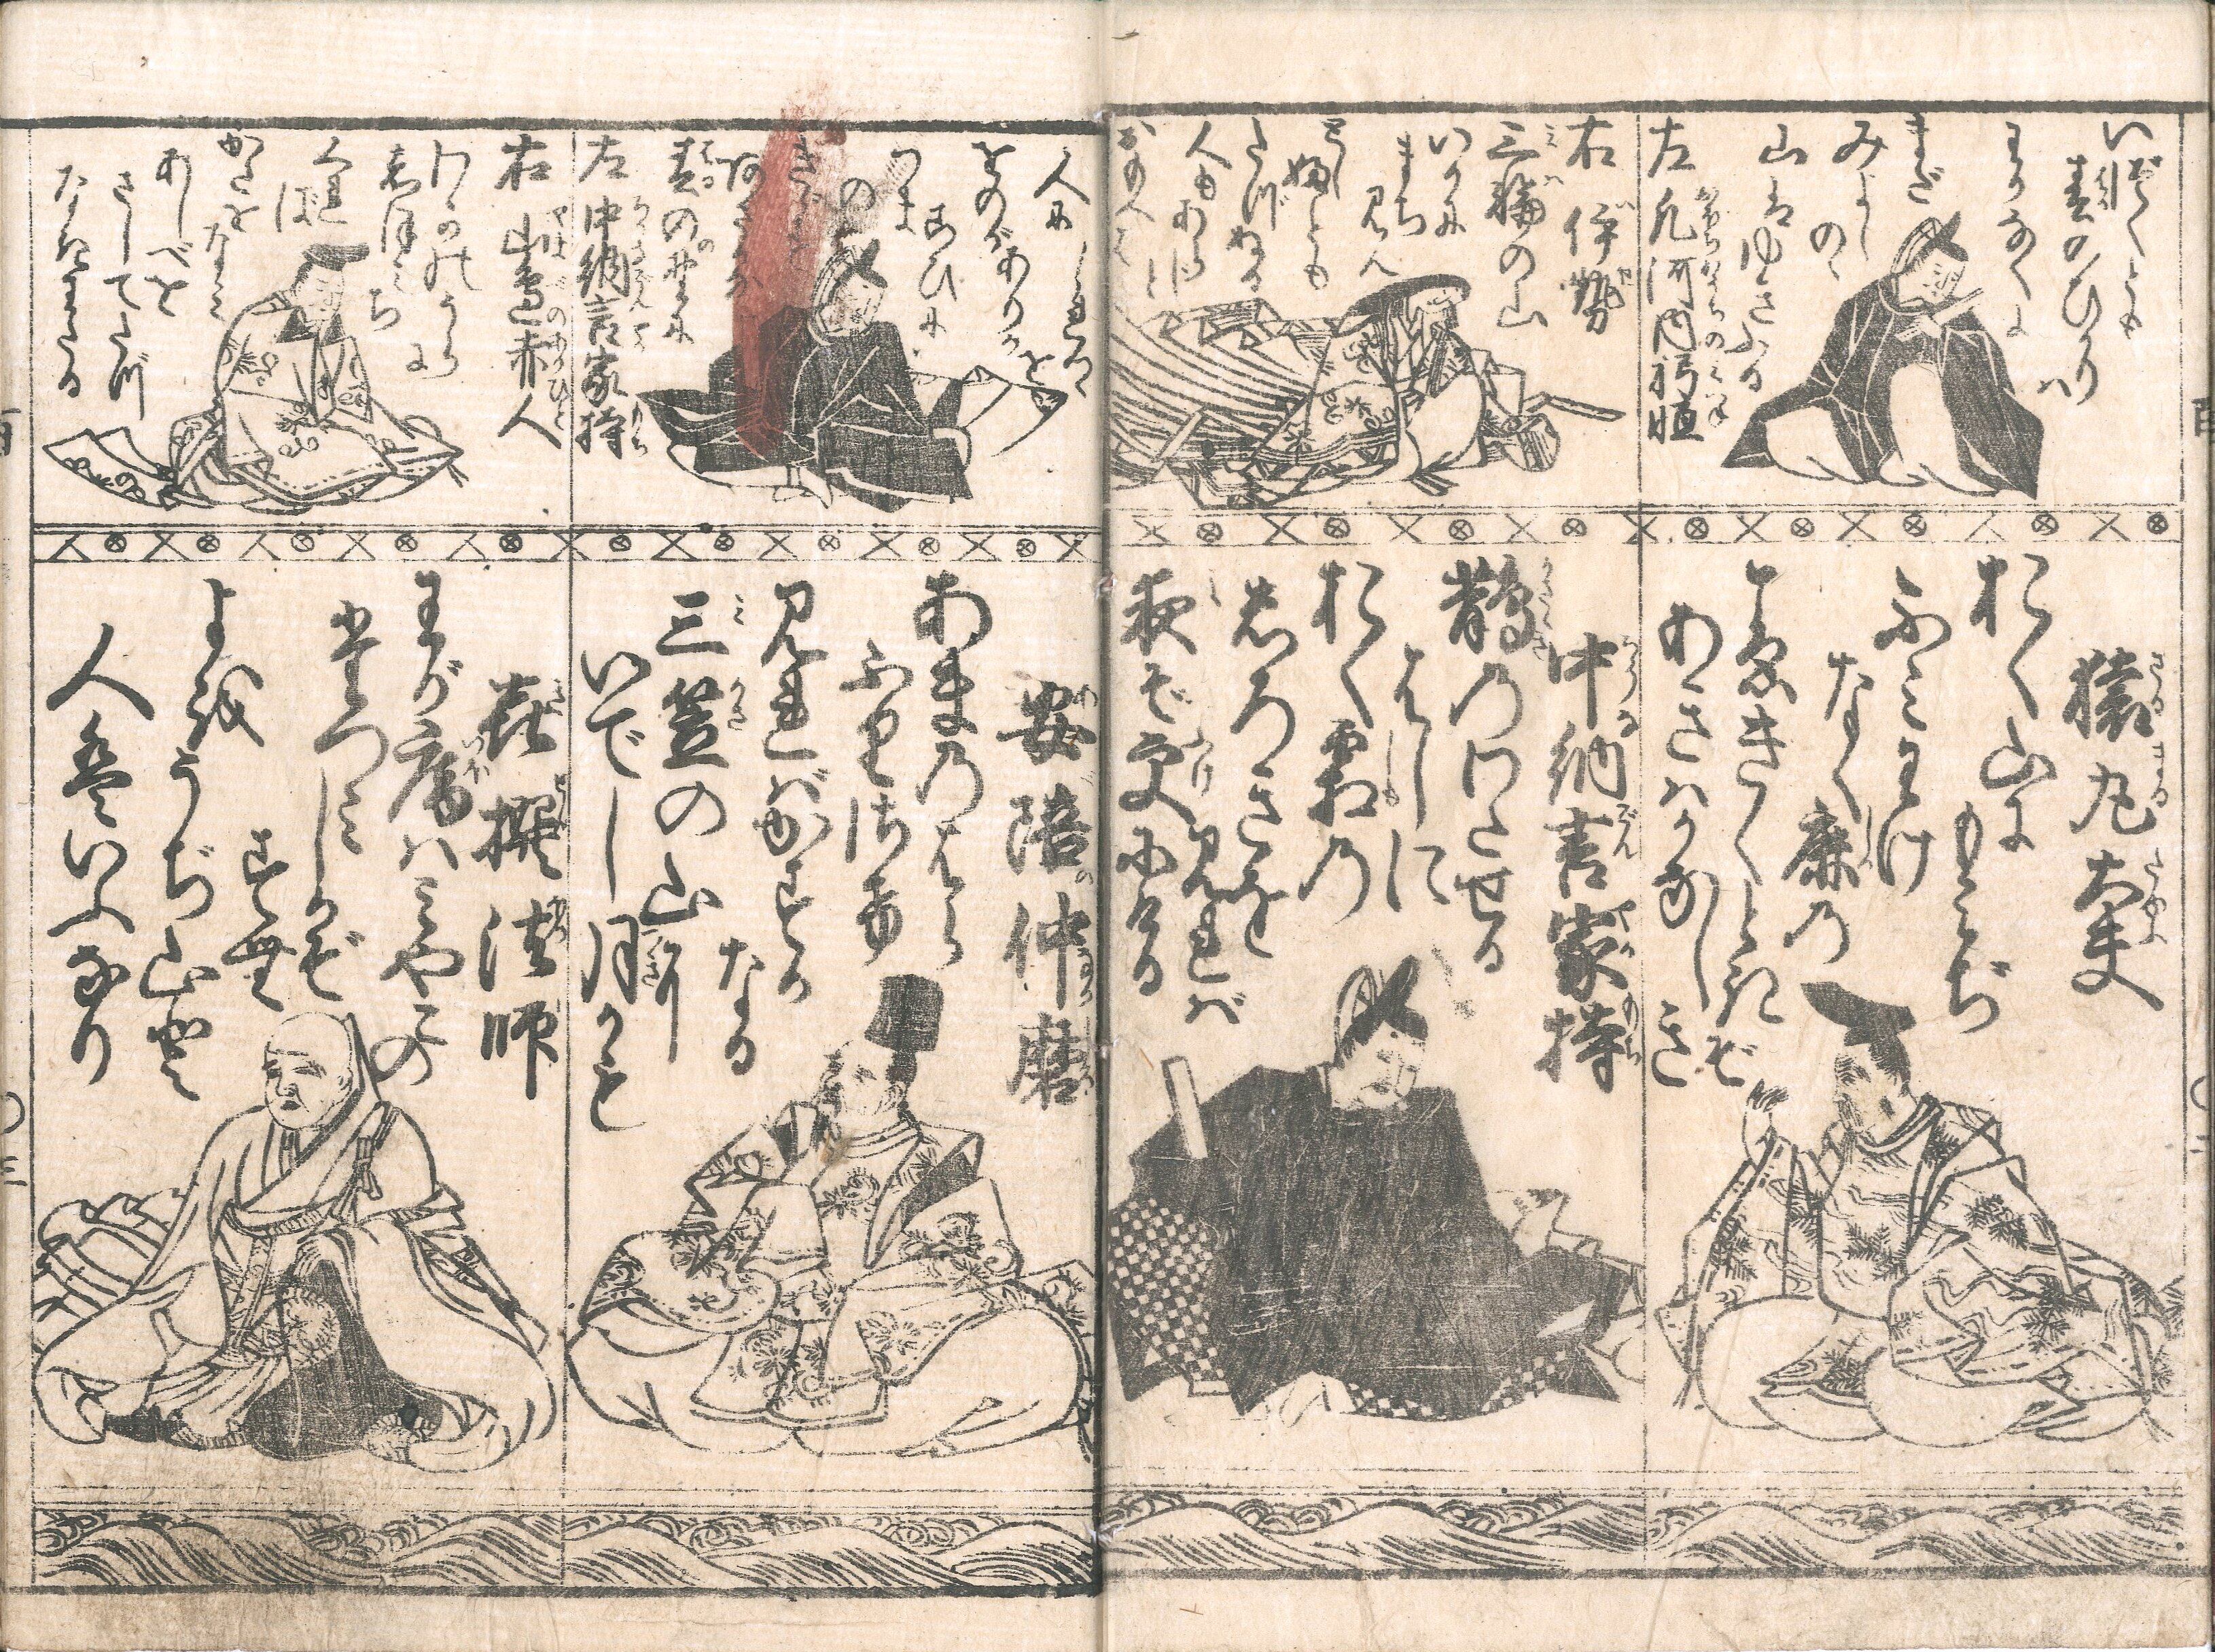 いづくとも
春のひかりハ
わかなくに
まだ
みよしのゝ
山はゆきふる
左 凡河内躬恒
右 伊勢
三輪の山
いかに
まち
見ん
としふとも
たづぬる
人もあらじ
と
おもへば
左 中納言家持
春の野に
あさる
きゞす
の
つまごひに
をのがありかを
人にしれつゝ
右 山邉赤人
わかのうらに
しほみち
くれば
かたをなみ
あしべを
さして
たづなきわたる
猿丸太夫
おく山に
もみぢ
ふみわけ
なく鹿の
こゑきくときぞ
あきハかなしき
中納言家持
鵲のわたせる
はしに
おく霜の
しろきを
見れば
夜ぞ更にける
安陪仲磨
あまのはら
ふりさけ
見ればかすが
なる
三笠の山に
いでし月かも
喜撰法師
わが庵ハみやこの
たつみ
しかぞ
すむ
よをうぢ山と
人はいふなり